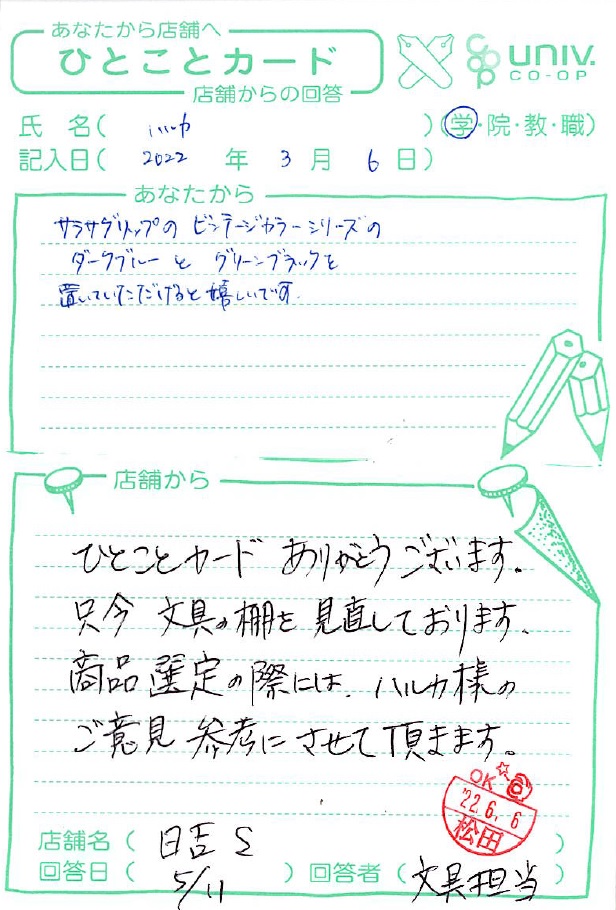 あなたから店舗へ
ひとことカード
店舗からの回答
UNIV.
CO-OP
氏 名( ハルカ )(学・院・教・職)
記入日( 2022 年 3 月 6 日)
あなたから
サラサグリップの ビンテージカラーシリーズの
ダークブルーと グリーンブラックを
置いていただけると嬉しいです
店舗から
ひとことカード ありがとうございます。
只今 文具の棚を見直しております。
商品選定の際には、ハルカ様の
ご意見 参考にさせて頂きます。
OK
'22.6.6
松田
店舗名( 日吉 )
回答日( 5/11 )回答者( 文具担当 )